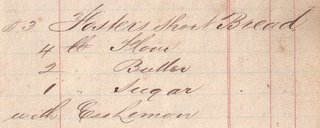 63 Fosters Short Bread
4 ℔ Flour
2 " Butter
1 " Sugar
with Ess Lemon